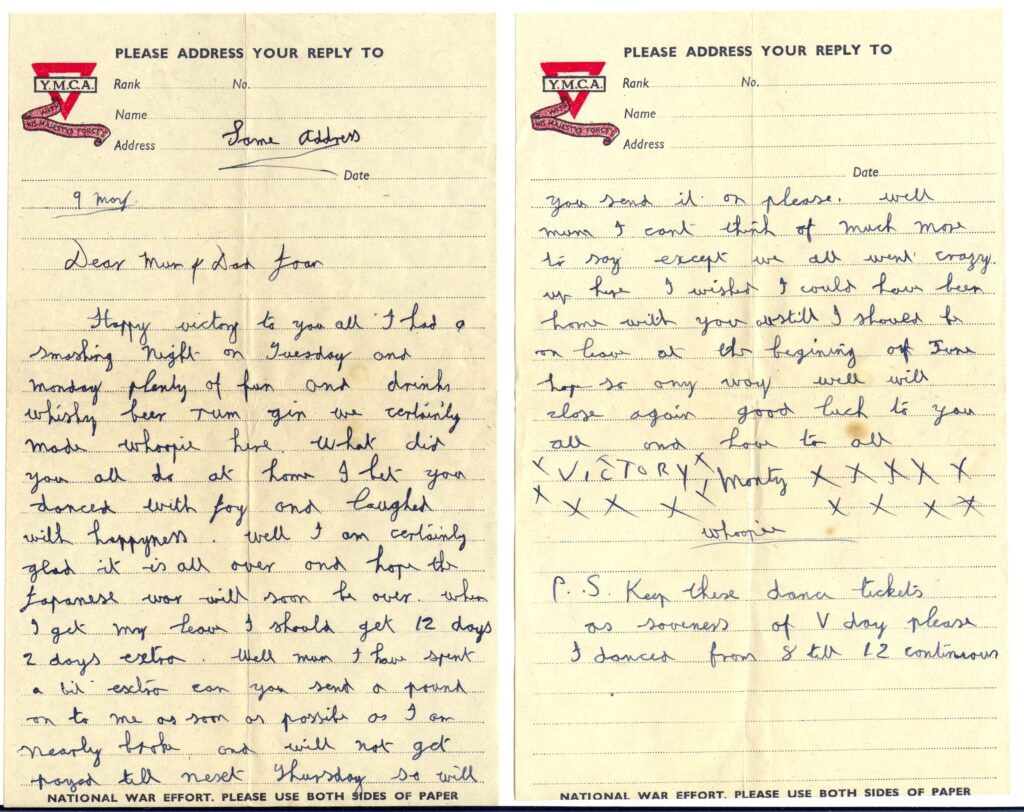 PLEASE ADDRESS YOUR REPLY TO
Y.M.C.A.
WITH
HIS MAJESTY'S FORCES
Rank No.
Name
Address Same Address
Date
9 May
Dear Mum & Dad Joan
Happy victory to you all I had a
smashing night on Tuesday and
monday plenty of fun and drinks
whisky beer rum gin we certainly
made whoopie here. What did
you all do at home I bet you
danced with joy and laughed
with happyness. Well I am certainly
glad it is all over and hope the
Japanese war will soon be over. when
I get my leave I should get 12 days
2 days extra. Well mum I have spent
a bit extra can you send a pound
on to me as soon as possible as I am
nearly broke and will not get
payed till next Thursday so will
NATIONAL WAR EFFORT. PLEASE USE BOTH SIDES OF PAPER
PLEASE ADDRESS YOUR REPLY TO
Y.M.C.A.
WITH
HIS MAJESTY'S FORCES
Rank No.
Name
Address
Date
you send it on please. well
mum I cant think of much more
to say except we all went crazy.
up here I wished I could have been
home with you still I should be
on leave at the begining of June
hope so any way well will
close again good luck to you
all and love to all
x VICTORY, x Monty X X X X X
x x x x x x x x x
whoopie
P.S. Keep these dance tickets
as soveness of V day please
I danced from 8 till 12 continious
NATIONAL WAR EFFORT. PLEASE USE BOTH SIDES OF PAPER